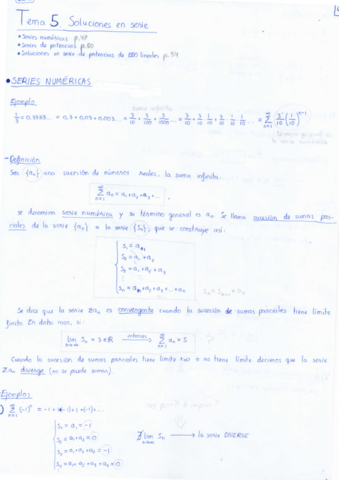 Tema 5. Soluciones en serie
• Series numéricas p.49
• Series de potencias p.50
• Soluciones en serie de potencias de EDO lineales p.54
• SERIES NUMÉRICAS
Ejemplo
suma infinita
1/3 = 0.3333... = 0.3 + 0.03 + 0.003... = 3/10 + 3/100 + 3/1000 ... = 3/10 + 3/10 · 1/10 + 3/10 · 1/10 · 1/10 ... = ∑ n=1 ∞ 3/10 (1/10)ⁿ⁻¹
término general de la serie numérica
- Definición
Sea {aₙ} una sucesión de números reales, la suma infinita
∑ n=1 ∞ aₙ = a₁ + a₂ + a₃ + ...
se denomina serie numérica y su término general es aₙ. Se llama sucesión de sumas par-
ciales de la serie {aₙ} a la serie {Sₙ} que se construye así:
S₁ = a₁
S₂ = a₁ + a₂
S₃ = a₁ + a₂ + a₃
Sₙ = a₁ + a₂ + a₃ + ... + aₙ
Sₙ = Sₙ₋₁ + aₙ
Se dice que la serie ∑aₙ es convergente cuando la sucesión de sumas parciales tiene límite
finito. En dicho caso, si:
lim n→∞ Sₙ = S ∈ ℝ entonces → ∑ n=1 ∞ aₙ = S
Cuando la sucesión de sumas parciales tiene límite ±∞ o no tiene límite decimos que la serie
∑aₙ diverge (no se puede sumar).
Ejemplos
∑ n=1 ∞ (-1)ⁿ = -1 + 1 + (-1) + 1 + (-1) + ...
S₁ = a₁ = -1
S₂ = a₁ + a₂ = 0
S₃ = a₁ + a₂ + a₃ = -1
S₄ = a₁ + a₂ + a₃ + a₄ = 0
∄ lim n→∞ Sₙ → la serie DIVERGE